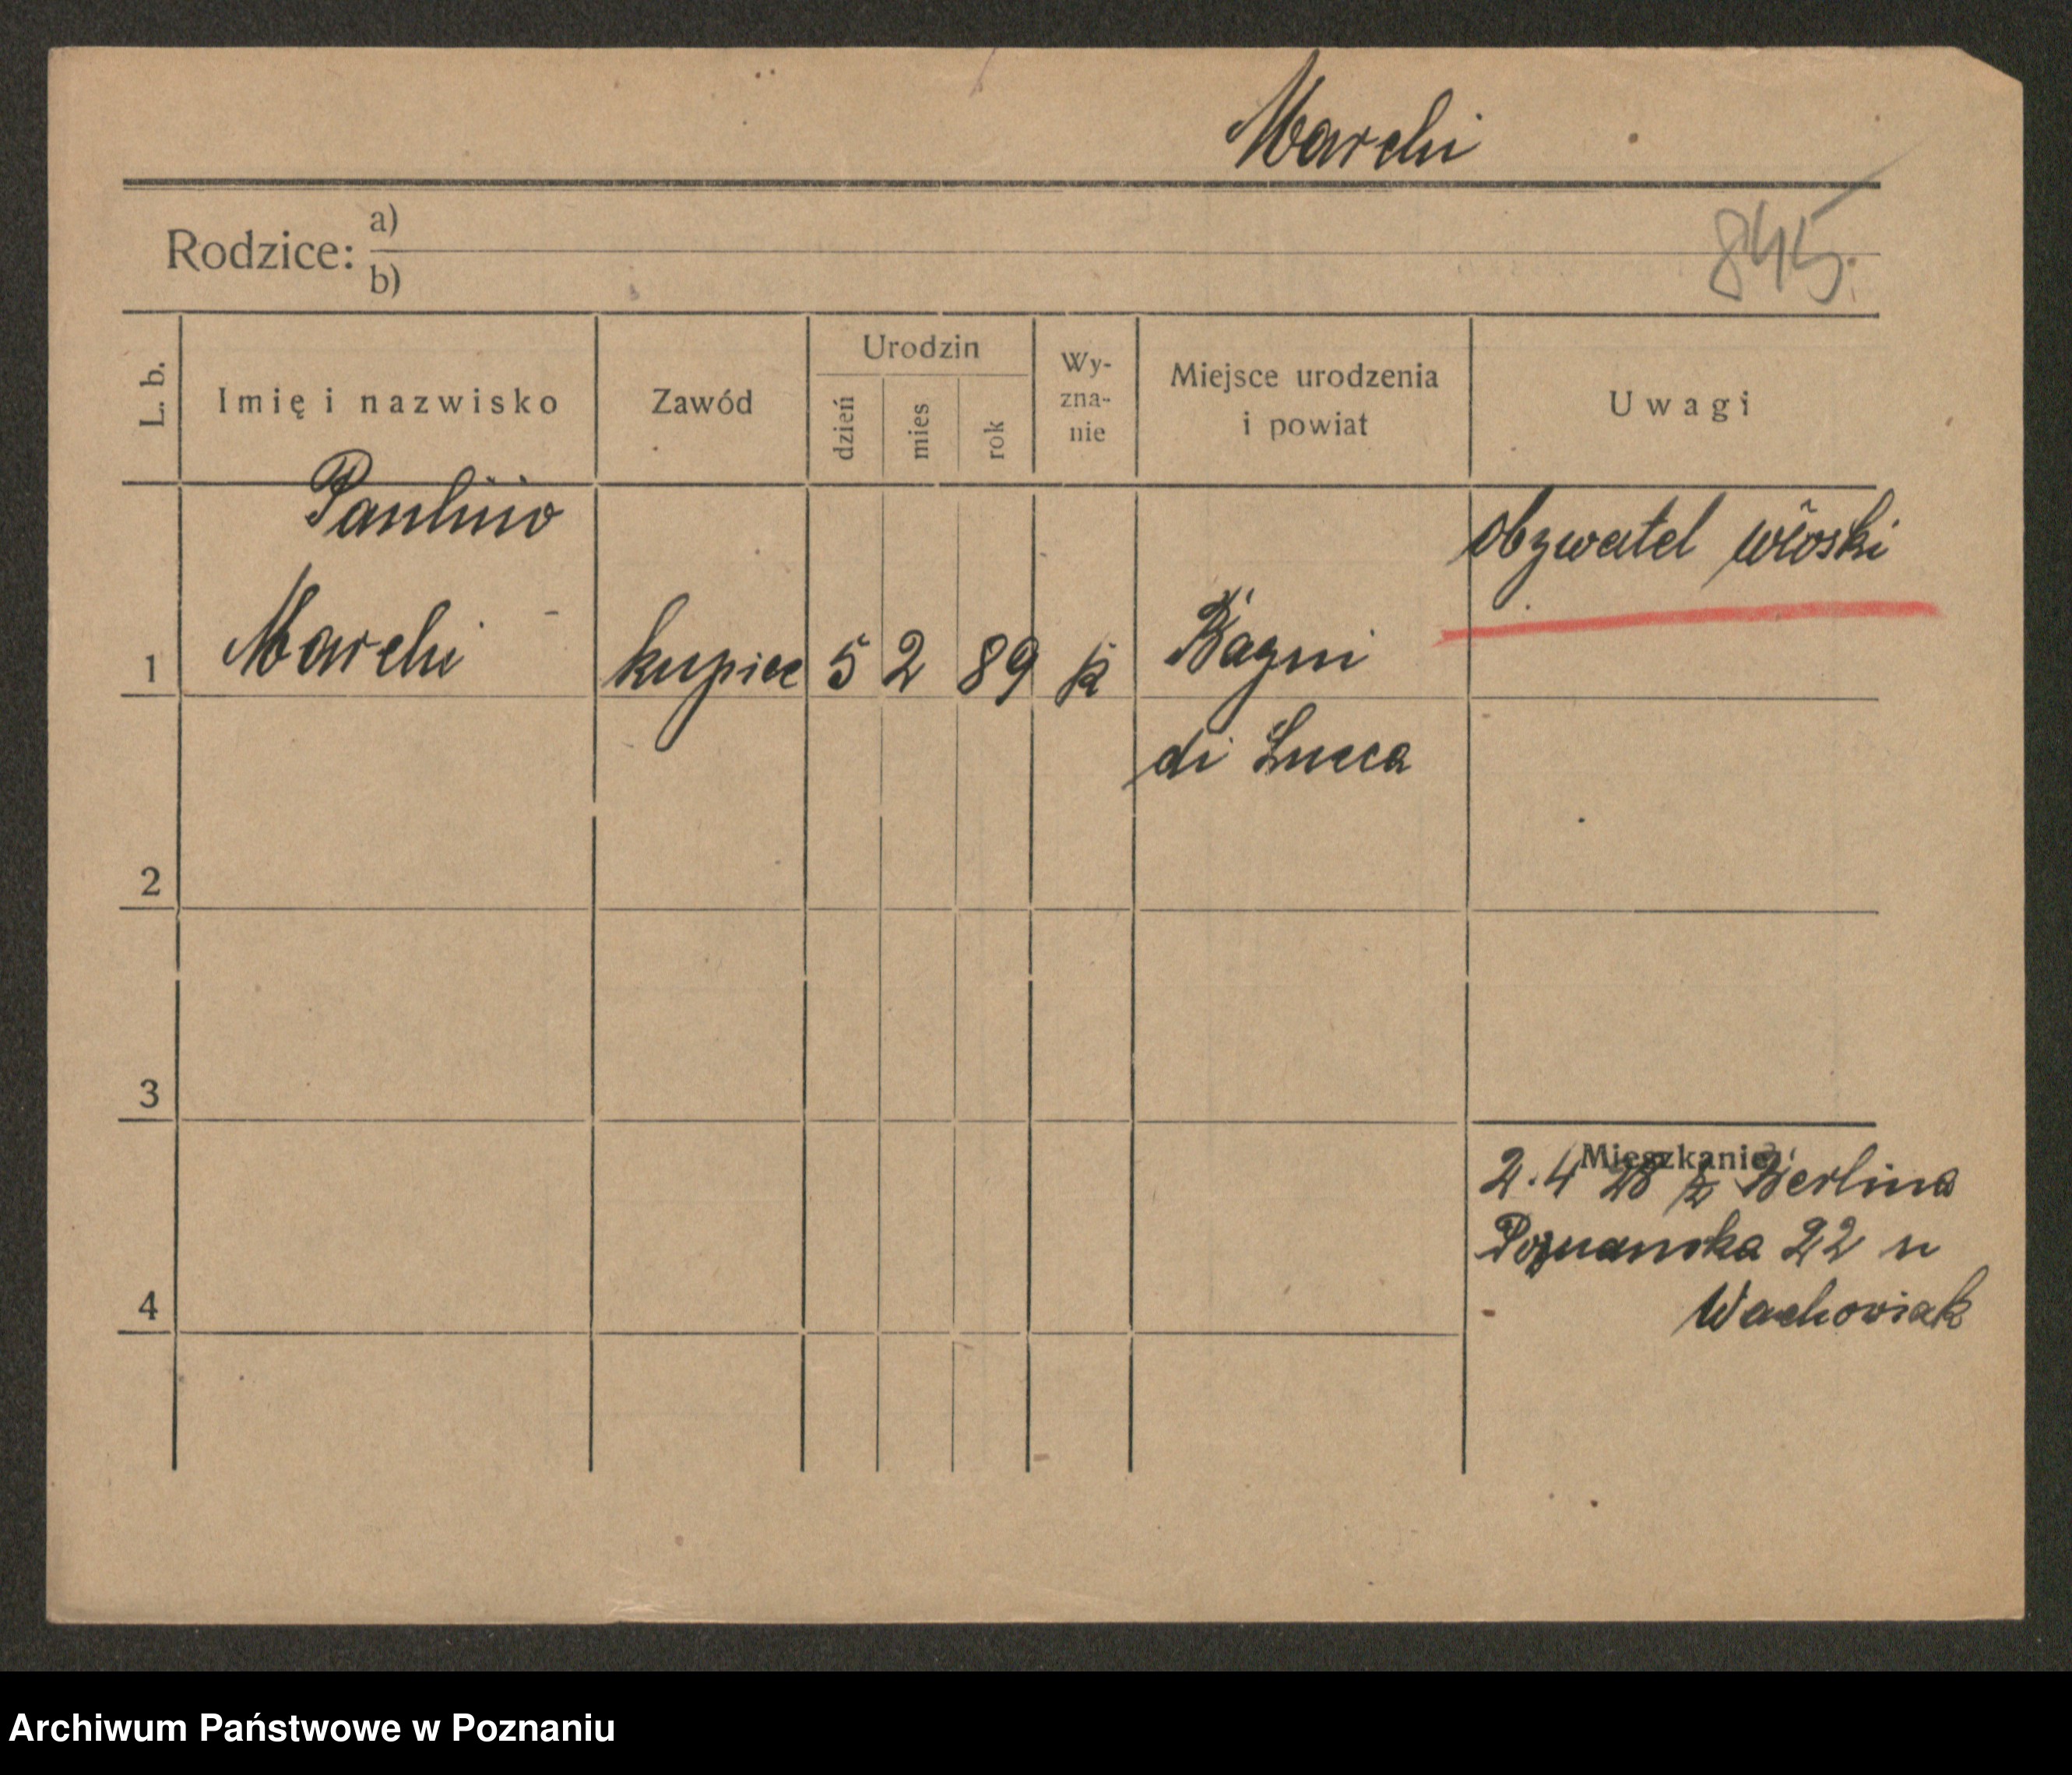 Marchi
845.
Rodzice: a)
b)
L. b.
Imię i nazwisko
Zawód
Urodzin
dzień
mies
rok
Wy-
zna-
nie
Miejsce urodzenia
i powiat
Uwagi
Paulino
Marchi
1
kupiec
5
2
89
k
Bagni
di Lucca
obywatel włoski
2
3
4
Mieszkanie:
2.4 28 z Berlina
Poznanska 22 u
Wachowiak
Archiwum Państwowe w Poznaniu